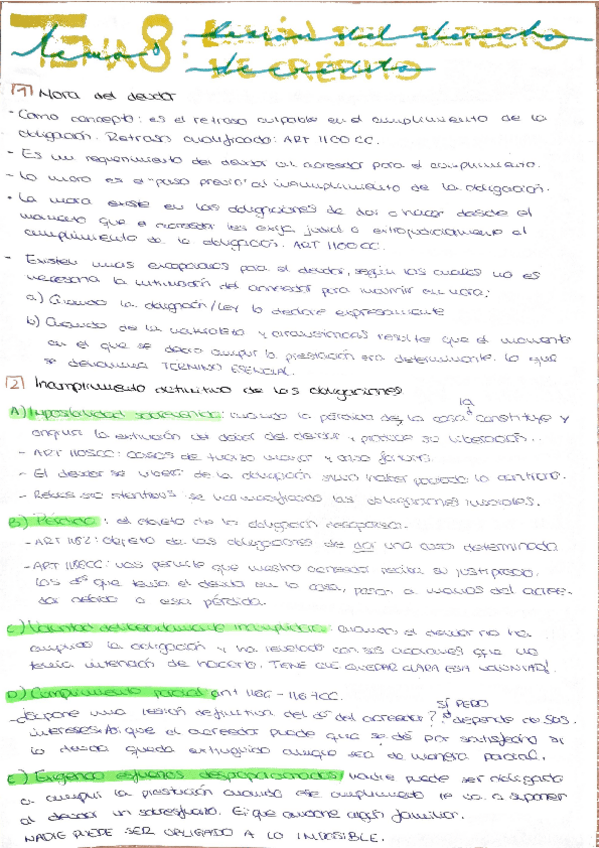 TEMA 8: LESIÓN DEL DERECHO
DE CRÉDITO
1 Mora del deudor
- Como concepto: es el retraso culpable en el cumplimiento de la
obligación. Retraso cualificado: ART 1100 CC.
- Es un requerimiento del deudor al acreedor para el cumplimiento.
- La mora es el "paso previo" al incumplimiento de la obligación.
• La mora existe en las obligaciones de dar o hacer desde el
momento que el acreedor les exija judicial o extrajudicialmente el
cumplimiento de la obligación. ART 1100 CC.
- Existen unas excepciones para el deudor, según las cuales no es
necesaria la intimación del acreedor para incurrir en mora:
a) Cuando la obligación/Ley lo declare expresamente
b) Cuando de la naturaleza y circunstancias resulte que el momento
en el que se debía cumplir la prestación era determinante. Lo que
se denomina TERMINO ESENCIAL.
2 Incumplimiento definitivo de las obligaciones
A) Imposibilidad sobrevenida: cuando la pérdida de la cosa constituye y
la extinción del deber del deudor y produce su liberación.
- ART 1105CC: casos de fuerza mayor y caso fortuito.
- El deudor se libera de la obligación salvo haber pactado lo contrario.
- Rebus sic stantibus: se las obligaciones iniciales.
B) Pérdida: el objeto de la obligación desaparece.
- ART 1182: objeto de las obligaciones de dar una cosa determinada
- ART 1186CC: nos permite que nuestro acreedor reciba su justiprecio.
Los dºs que tenía el deudor en la cosa, pasan a manos del acree-
dor debido a esa pérdida.
C) Voluntad deliberadamente incumplidora: cuando el deudor no ha
cumplido la obligación y ha revelado con sus acciones que no
tenía intención de hacerlo. TIENE QUE QUEDAR CLARA ESTA VOLUNTAD!
D) Cumplimiento parcial art 1166 - 1167CC.
SÍ PERO
- ¿Supone una lesión definitiva del dº del acreedor? depende de sus
intereses. Así que el acreedor puede que se dé por satisfecho si
la deuda queda extinguida aunque sea de manera parcial.
E) Exigencia esfuerzos desproporcionados: nadie puede ser obligado
a cumplir la prestación cuando ese cumplimiento le va a suponer
al deudor un sobresfuerzo. Ej: que enferme algún familiar.
NADIE PUEDE SER OBLIGADO A LO IMPOSIBLE.